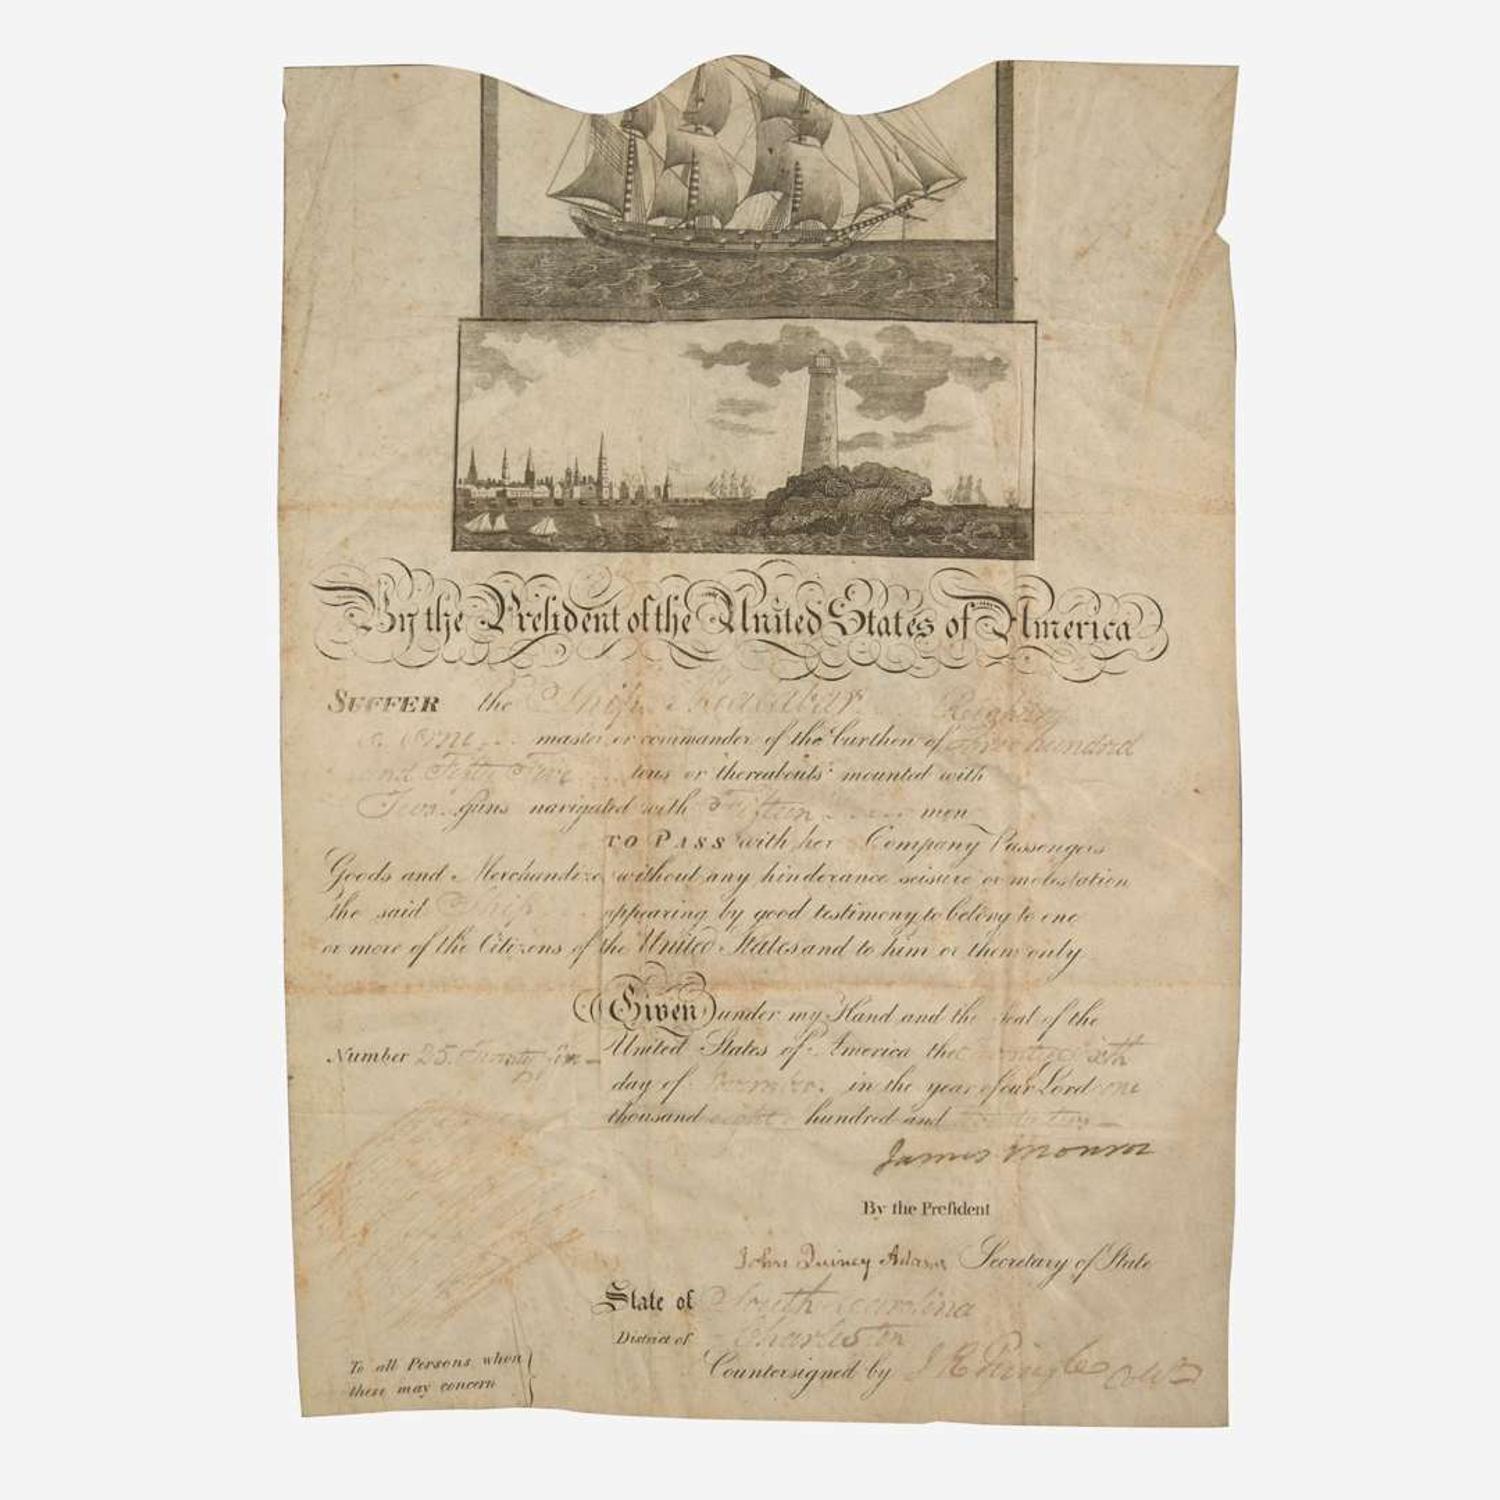 By the President of the United States of America
SUFFER the Ship
master or commander of the burthen of hundred
and Fifty Five tons or thereabouts mounted with
Two Guns navigated with Fifteen men
TO PASS with her Company Passengers
Goods and Merchandize without any hinderance seisure or molestation
the said Ship appearing by good testimony to belong to one
or more of the Citizens of the United States and to him or them only
Given under my Hand and the Seal of the
Number 25. Twenty five United States of America the twenty sixth
day of in the year of our Lord one
thousand eight hundred and
James Monroe
By the President
John Quincy Adams Secretary of State
State of South Carolina
District of Charleston
To all Persons whom
these may concern
Countersigned by J R Pringle